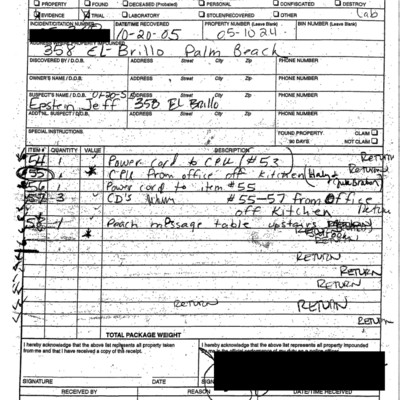 PROPERTY FOUND DECEASED (Probated) PERSONAL CONFISCATED DESTROY
EVIDENCE TRIAL LABORATORY STOLEN/RECOVERED OTHER Lab
INCIDENT/CITATION NUMBER DATE/TIME RECOVERED PROPERTY NUMBER (Leave Blank) BIN NUMBER (Leave Blank)
10-20-05 05-1024
358 El-Brillo Palm Beach
DISCOVERED BY / D.O.B. ADDRESS Street City Zip PHONE NUMBER
OWNER'S NAME / D.O.B. ADDRESS Street City Zip PHONE NUMBER
SUSPECT'S NAME / D.O.B. ADDRESS Street City Zip PHONE NUMBER
Epstein Jeff 358 El Brillo
ADD'TNL. SUSPECT / D.O.B. ADDRESS Street City Zip PHONE NUMBER
SPECIAL INSTRUCTIONS: FOUND PROPERTY: CLAIM
90 DAYS NOT CLAIM
ITEM# QUANTITY VALUE DESCRIPTION RETURN
54 1 Power cord to CPU #53
55 1 CPU from office off kitchen RETURN
56 1 Power cord to item #55 RETURN
57 3 CD's #55-57 from office
off Kitchen Return
58 1 Peach message table upstairs
RETURN
RETURN
RETURN
RETURN RETURN
RETURN
TOTAL PACKAGE WEIGHT
I hereby acknowledge that the above list represents all property taken
from me and that I have received a copy of this receipt.
I hereby acknowledge that the above list represents all property impounded
SIGNATURE DATE SIGNATURE
RECEIVED BY REASON DATE/TIME RECEIVED